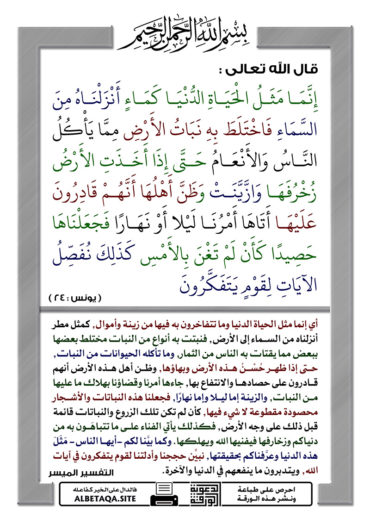 بسم الله الرحمن الرحيم
قال الله تعالى :
إِنَّمَا مَثَلُ الْحَيَاةِ الدُّنْيَا كَمَاءٍ أَنْزَلْنَاهُ مِنَ
السَّمَاءِ فَاخْتَلَطَ بِهِ نَبَاتُ الأَرْضِ مِمَّا يَأْكُلُ
النَّاسُ وَالأَنْعَامُ حَتَّى إِذَا أَخَذَتِ الأَرْضُ
زُخْرُفَهَا وَازَّيَّنَتْ وَظَنَّ أَهْلُهَا أَنَّهُمْ قَادِرُونَ
عَلَيْهَا أَتَاهَا أَمْرُنَا لَيْلا أَوْ نَهَارًا فَجَعَلْنَاهَا
حَصِيدًا كَأَنْ لَمْ تَغْنَ بِالأَمْسِ كَذَلِكَ نُفَصِّلُ
الآيَاتِ لِقَوْمٍ يَتَفَكَّرُونَ
( يونس : ٢٤ )
أي إنما مثل الحياة الدنيا وما تتفاخرون به فيها من زينة وأموال، كمثل مطر
أنزلناه من السماء إلى الأرض، فنبتت به أنواع من النبات مختلط بعضها
ببعض مما يقتات به الناس من الثمار، وما تأكله الحيوانات من النبات،
حتى إذا ظهر حُسْنُ هذه الأرض وبهاؤها، وظن أهل هذه الأرض أنهم
قادرون على حصادها والانتفاع بها، جاءها أمرنا وقضاؤنا بهلاك ما عليها
من النبات، والزينة إما ليلا وإما نهارًا، فجعلنا هذه النباتات والأشجار
محصودة مقطوعة لا شيء فيها، كأن لم تكن تلك الزروع والنباتات قائمة
قبل ذلك على وجه الأرض، فكذلك يأتي الفناء على ما تتباهون به من
دنياكم وزخارفها فيفنيها الله ويهلكها. وكما بيَّنا لكم -أيها الناس- مَثَلَ
هذه الدنيا وعرَّفناكم بحقيقتها، نبيِّن حججنا وأدلتنا لقوم يتفكرون في آيات
الله، ويتدبرون ما ينفعهم في الدنيا والآخرة. التفسير الميسر
احرص على طباعة
ونشر هذه الورقة
الدعوية
الورقة
فالدال على الخير كفاعله
ALBETAQA.SITE